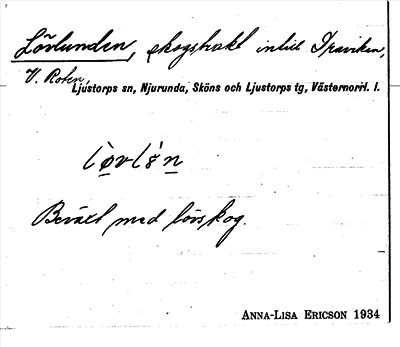 Lövlunden, skogstrakt intill Traviken,
V. Roten,
Ljustorps sn, Njurunda, Sköns och Ljustorps tg, Västernorrl. l.
Beväxt med lövskog.
ANNA-LISA ERICSON 1934